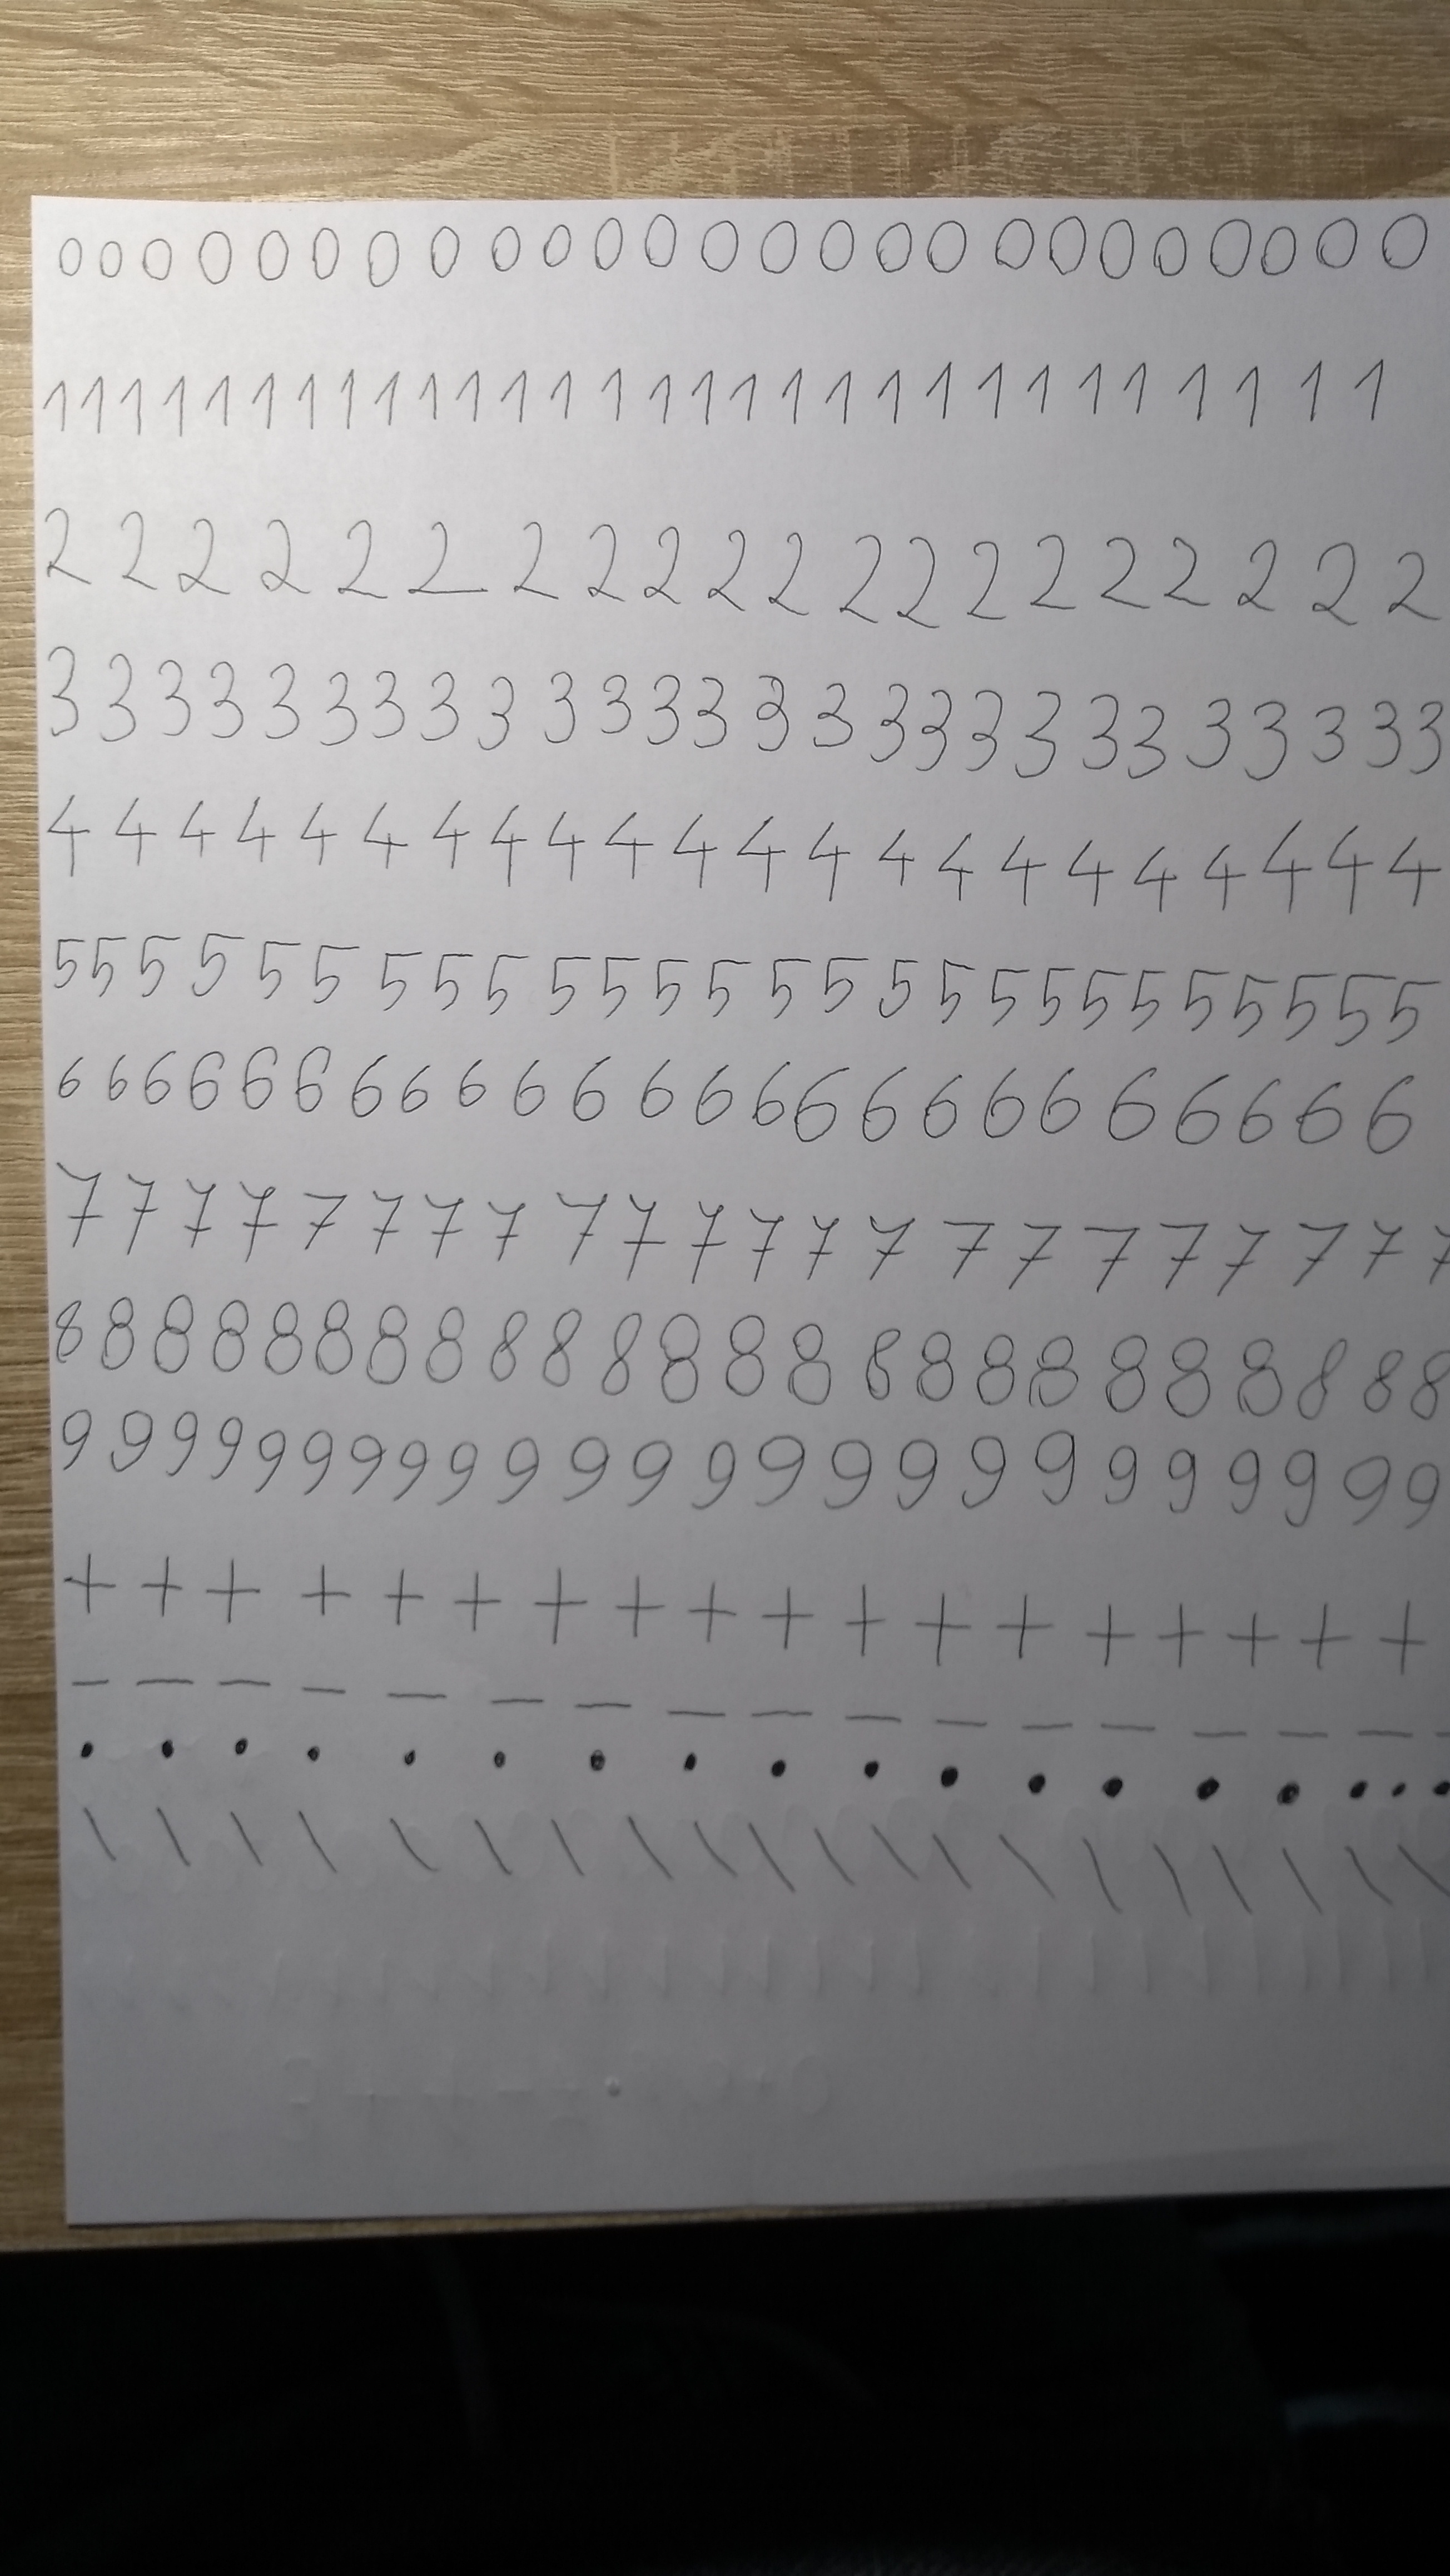 0 0 0 0 0 0 0 0 0 0 0 0 0 0 0 0 0 0 0 0 0 0 0 0 0
1 1 1 1 1 1 1 1 1 1 1 1 1 1 1 1 1 1 1 1 1 1 1 1 1 1 1 1 1
2 2 2 2 2 2 2 2 2 2 2 2 2 2 2 2 2 2 2 2
3 3 3 3 3 3 3 3 3 3 3 3 3 3 3 3 3 3 3 3 3 3 3 3 3 3
4 4 4 4 4 4 4 4 4 4 4 4 4 4 4 4 4 4 4 4 4 4
5 5 5 5 5 5 5 5 5 5 5 5 5 5 5 5 5 5 5 5 5 5 5 5 5 5
6 6 6 6 6 6 6 6 6 6 6 6 6 6 6 6 6 6 6 6 6 6 6 6
7 7 7 7 7 7 7 7 7 7 7 7 7 7 7 7 7 7 7 7 7 7
8 8 8 8 8 8 8 8 8 8 8 8 8 8 8 8 8 8 8 8 8 8 8 8
9 9 9 9 9 9 9 9 9 9 9 9 9 9 9 9 9 9 9 9 9 9 9 9
+ + + + + + + + + + + + + + + + + +
- - - - - - - - - - - - - - - - -
. . . . . . . . . . . . . . . . . .
\ \ \ \ \ \ \ \ \ \ \ \ \ \ \ \ \ \ \ \